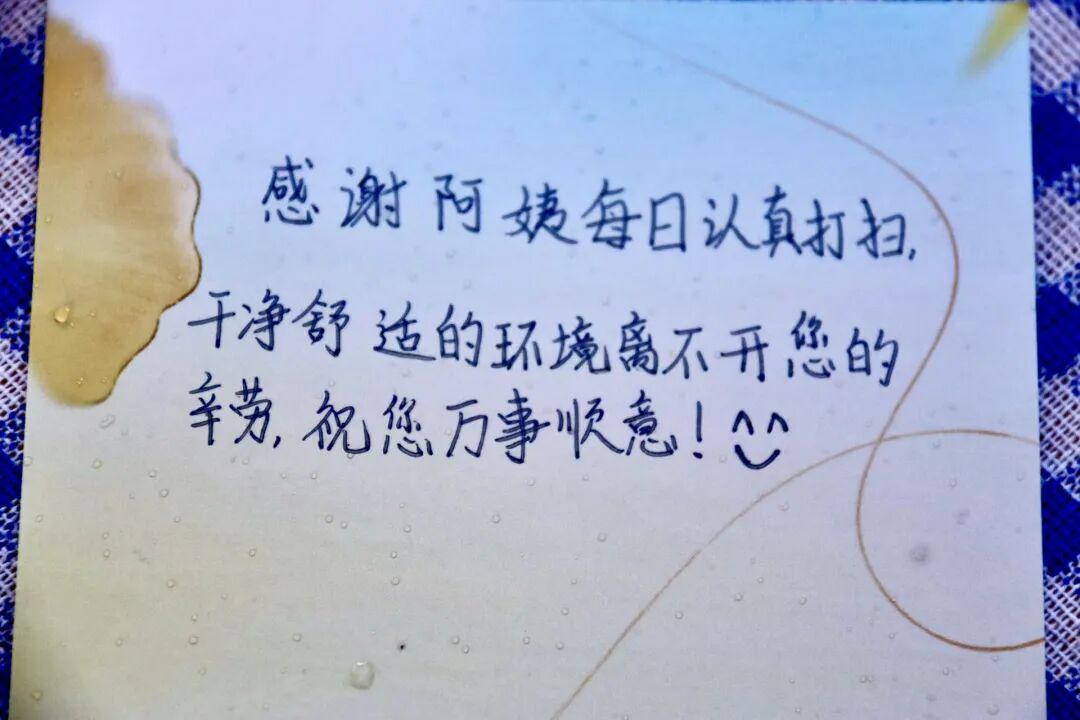 感谢阿姨每日认真打扫,
干净舒适的环境离不开您的
辛劳,祝您万事顺意!